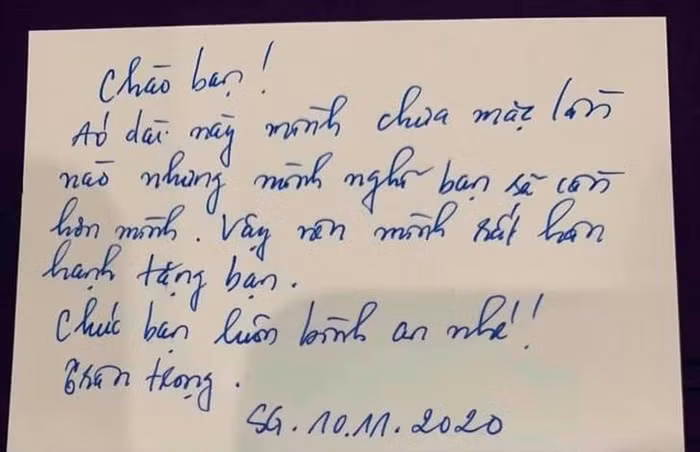 Chào bạn!
Áo dài này mình chưa mặc lần
nào nhưng mình nghĩ bạn sẽ cần
hơn mình. Vậy nên mình rất hân
hạnh tặng bạn.
Chúc bạn luôn bình an nhé!
Trân trọng.
SG. 10.11.2020